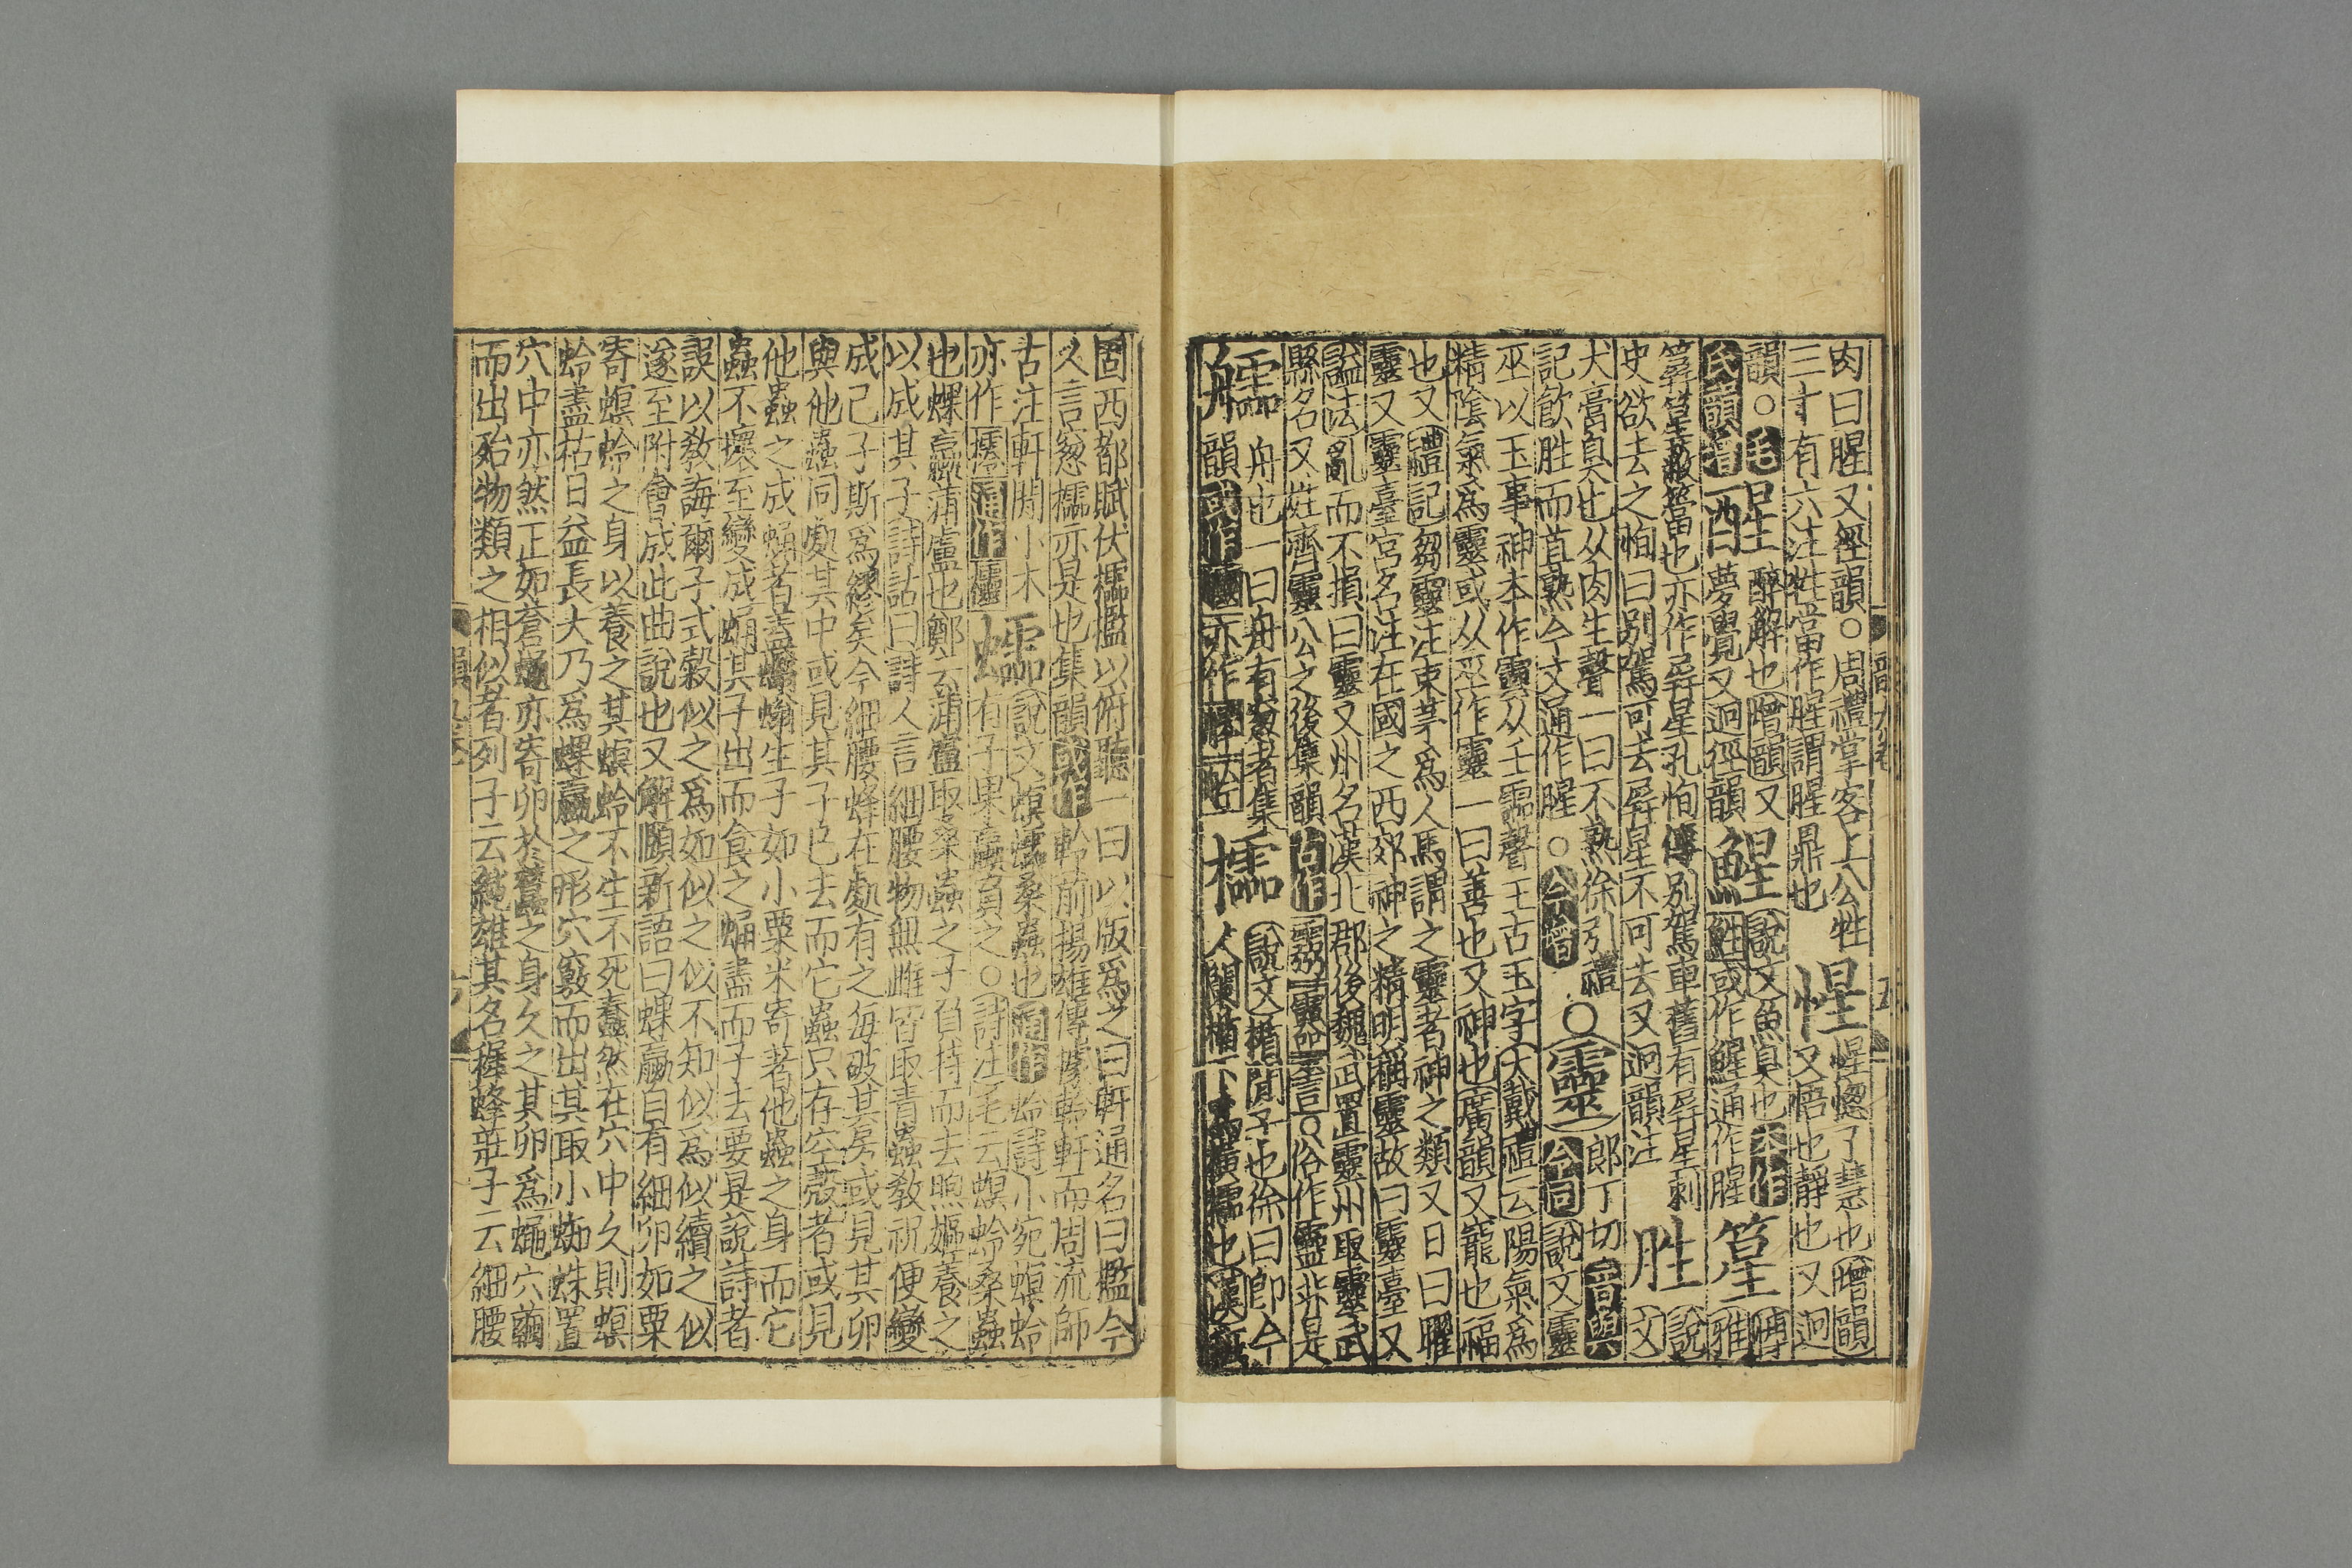 肉曰腥又徑韻○周禮掌客上公牲
三十有六注牲當作腥謂腥鼎也
惺
惺憁了慧也增韻
又悟也靜也又迥
韻○毛
氏韻增
醒
醉解也增韻又
夢覺又迥徑韻
鯹
說文魚臭也本作
鮏或作鯹通作腥
篂
博雅
篺篂蔽簹也亦作屏星孔恂傳別駕車舊有屏星刺
史欲去之恂曰別駕可去屏星不可去又迥韻注
胜
說文
犬膏臭也从肉生聲一曰不熟徐引禮
記飲胜而苴熟今文通作腥○今增
○靈
郎丁切音與
今同說文靈
巫以玉事神本作靈从王霝聲王古玉字大戴禮云陽氣爲
精陰氣爲靈或从巫作靈一曰善也又神也廣韻又寵也福
也又禮記芻靈注束茅爲人馬謂之靈者神之類又日曰曜
靈又靈臺宮名注在國之西郊神之精明稱靈故曰靈臺又
謚法亂而不損曰靈又州名漢北郡後魏武置靈州取靈武
縣名又姓齊靈公之後集韻古作
○俗作靈非是
舟也一曰舟有窻者集
韻或作
亦作
櫺
說文楯間子也徐曰即今
人闌楯下爲橫櫺也漢班
固西都賦伏櫺檻以俯聽一曰以版爲之曰軒通名曰檻今
人言窻櫺亦是也集韻或作軨前揚雄傳據軨軒而周流師
古注軒閒小木
亦作
通作
說文螟蠕桑蟲也通作蛉詩小宛螟蛉
有子果蠃負之○詩注毛云螟蛉桑蟲
也蜾蠃蒲盧也鄭云蒲盧取桑蟲之子負持而去煦嫗養之
以成其子詩詁曰詩人言細腰物無雌皆取青蟲敎祝便變
成己子斯爲繆矣今細腰蜂在處有之每破其房或見其卵
與他蟲同處其中或見其子已去而它蟲只存空殼者或見
他蟲之成蛹者蓋蠮螉生子如小粟米寄著他蟲之身而它
蟲不壞至變成蛹其子出而食之蛹盡而子去要是說詩者
誤以敎誨爾子式穀似之爲如似之似不知似爲似續之似
遂至附會成此曲說也又解頤新語曰蜾蠃自有細卵如粟
寄螟蛉之身以養之其螟蛉不生不死蠢然在穴中久則螟
蛉盡枯日益長大乃爲蜾蠃之形穴竅而出其取小蜘蛛置
穴中亦然正如蒼蠅亦寄卵於蠶之身久之其卵爲蠅穴繭
而出殆物類之相似者列子云純雄其名稺蜂莊子云細腰